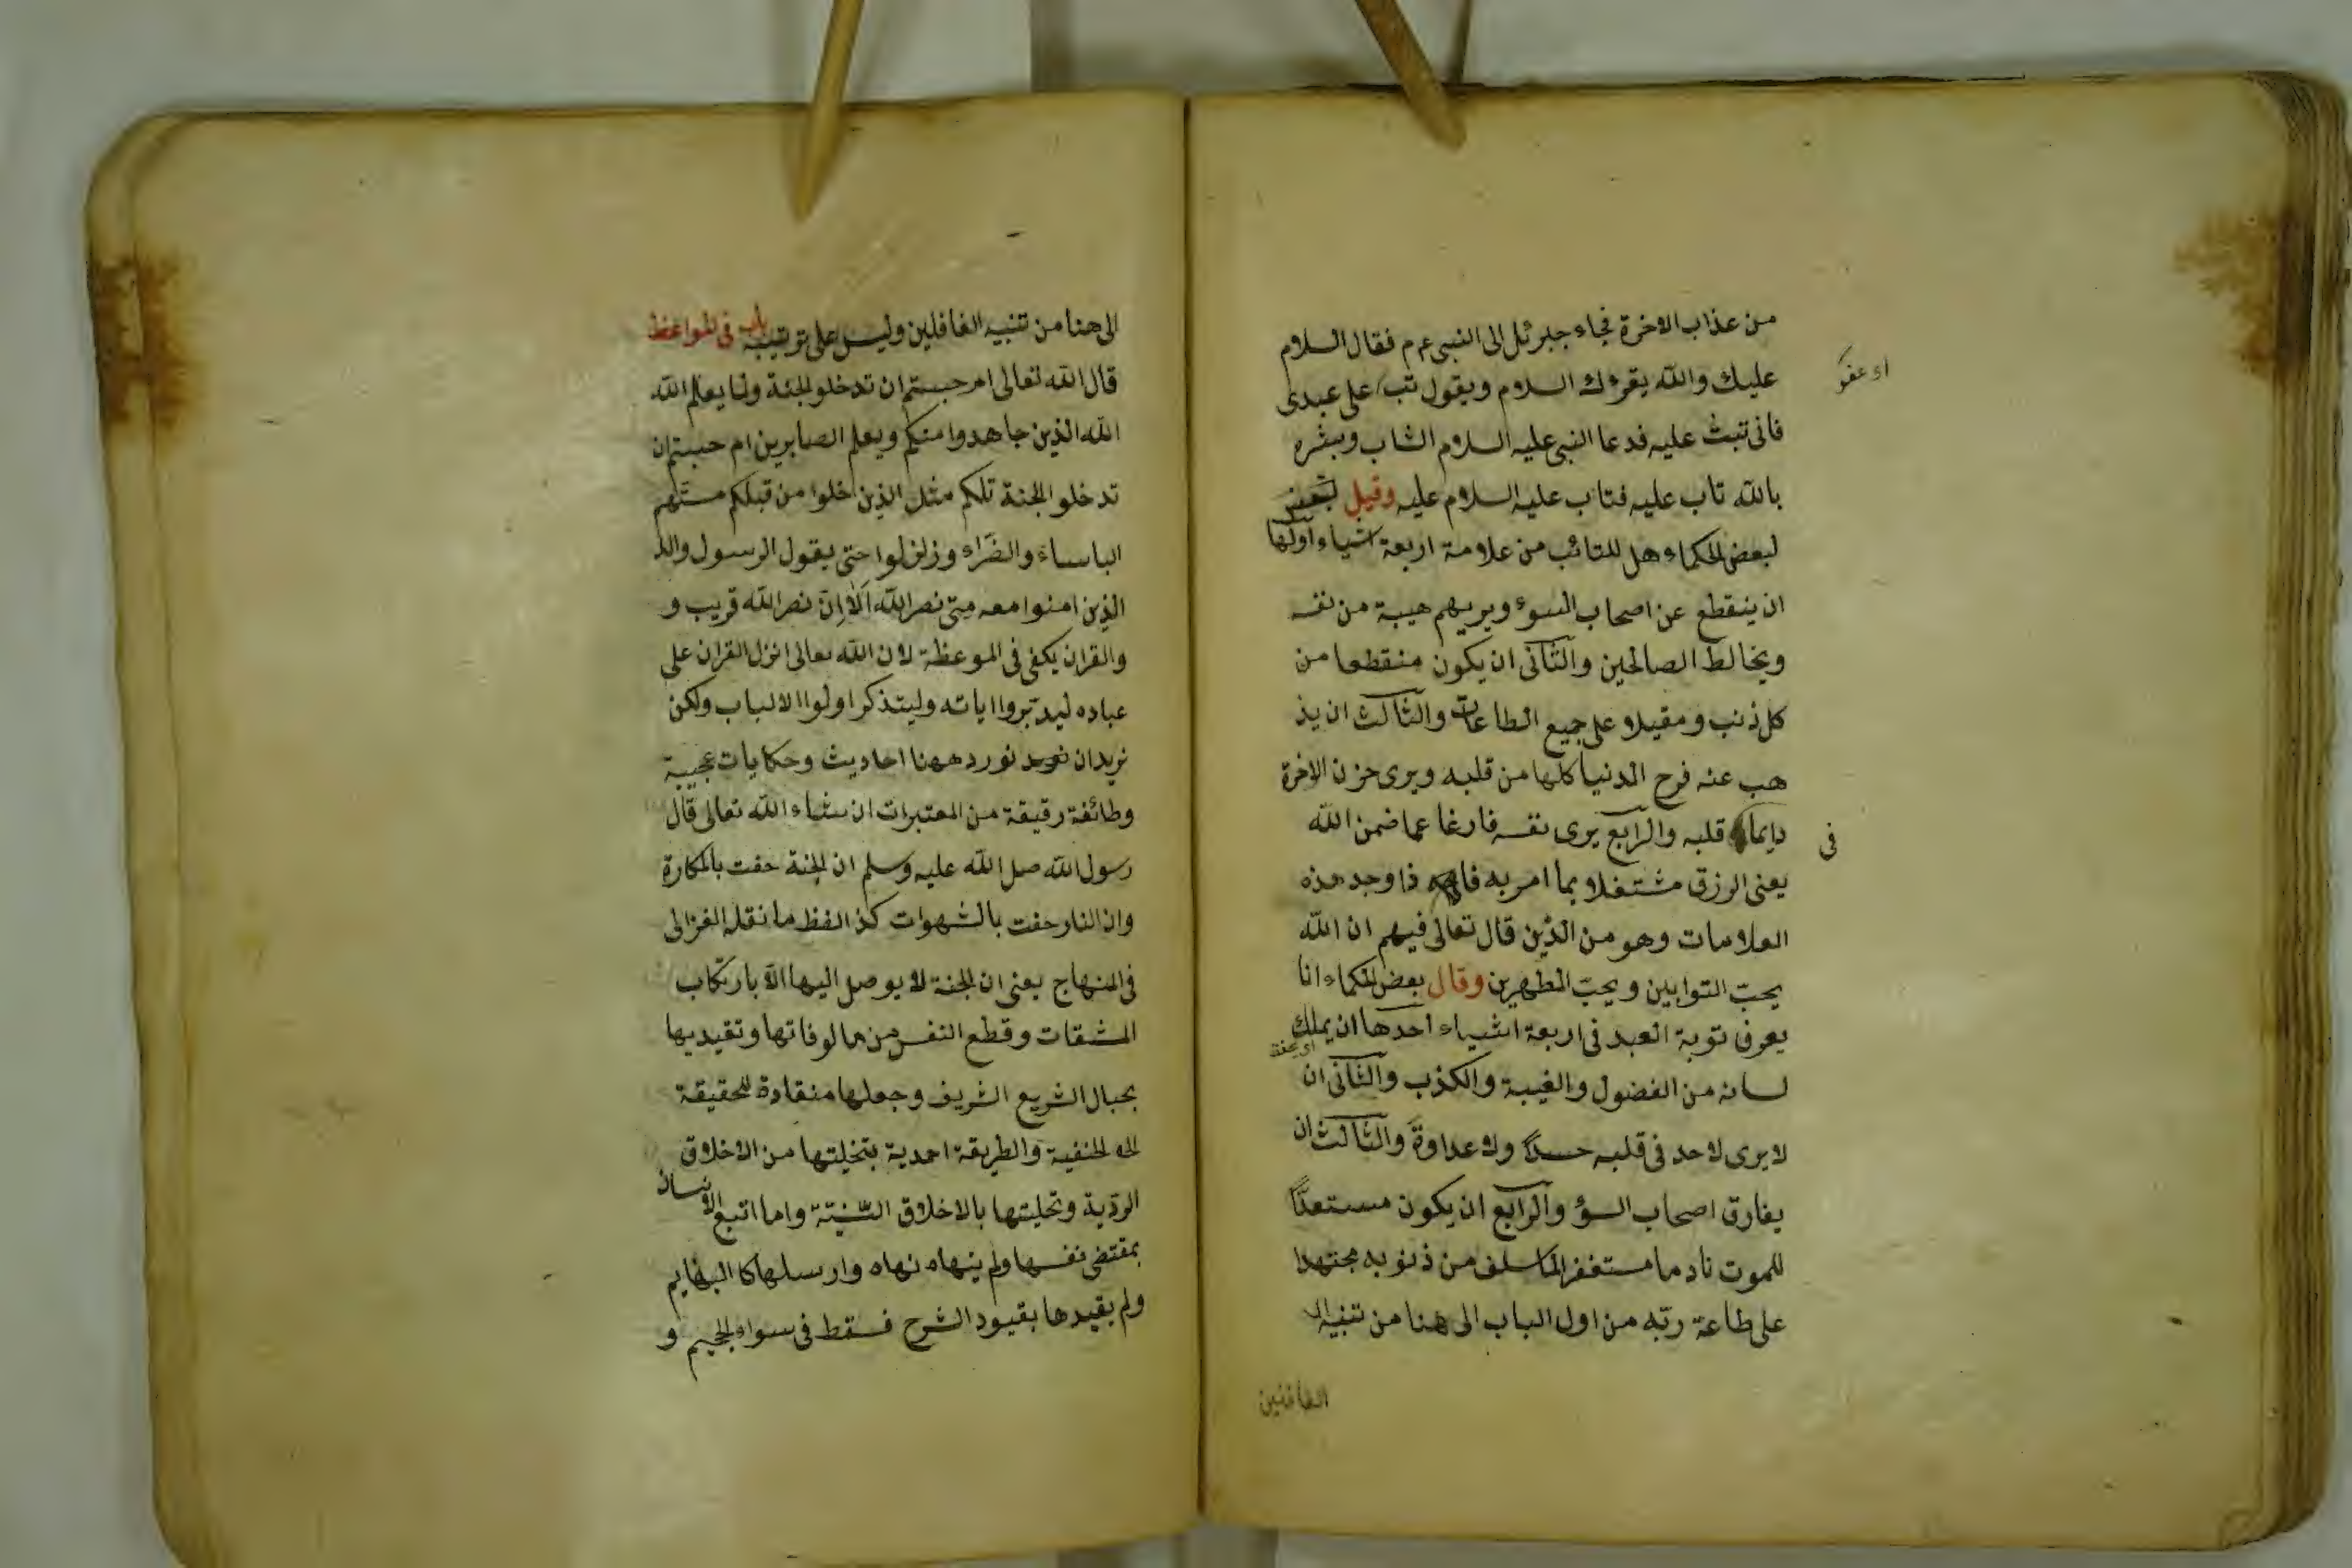 من عذاب الاخرة فجاء جبرئل الى النبى عم م فقال السلام
عليك والله يقرءك السلام ويقول تب على عبدى
او عفو
فانى تبت عليه فدعا النبى عليه السلام الشاب وبشره
بالله تاب عليه فتاب عليه السلام عليه وقيل لبعض
لبعض الحكماء هل للتائب من علامة اربعة اشياء اولها
ان ينقطع عن اصحاب السوء ويريهم هيبة من نفسه
ويخالط الصالحين والثانى ان يكون منقطعا من
كل ذنب ومقبلا على جميع الطاعات والثالث ان يذ
هب عنه فرح الدنيا كلها من قلبه ويرى حزن الاخرة
دايما قلبه والرابع يرى نفسه فارغا عما ضمن الله
فى
يعنى الرزق مشتغلا بما امر به فا ذا وجد هذه
العلامات وهو من الذين قال تعالى فيهم ان الله
يحب التوابين ويحب المطهرين وقال بعض الحكماء انا
يعرف توبة العبد فى اربعة اشياء احدها ان يملك
لسانه من الفضول والغيبة والكذب والثانى ان
لا يرى لاحد فى قلبه حسدا ولا عداوة والثالث ان
يفارق اصحاب السؤ والرابع ان يكون مستعدا
للموت نادما مستغفرا لما سلف من ذنوبه مجتهدا
على طاعة ربه من اول الباب الى هنا من تنبيه ال
الغافلين
الى هنا من تنبيه الغافلين وليس على ترتيبه باب فى المواعظ
قال الله تعالى ام حسبتم ان تدخلو الجنة ولما يعلم الله
الله الذين جاهدوا منكم ويعلم الصابرين ام حسبتم ان
تدخلو الجنة تلكم مثل الذين خلوا من قبلكم مستهم
الباساء والضراء وزلزلوا حتى يقول الرسول والذ
الذين امنوا معه متى نصر الله الا ان نصر الله قريب و
والقران يكفى فى الموعظة لان الله تعالى انزل القران على
عباده ليدبروا اياته وليتذكر اولوا الالباب ولكن
نريد ان نورد ههنا احاديث وحكايات عجيبة
وطائفة رقيقة من المعتبرات ان شاء الله تعالى قال
رسول الله صل الله عليه وسلم ان الجنة حفت بالمكارة
وان النار حفت بالشهوات كذ الفظ ما نقله الغزالى
فى المنهاج يعنى ان الجنة لا يوصل اليها الا بارتكاب
المشقات وقطع النفس من مالوفاتها وتقيديها
بحبال الشريع الشريف وجعلها منقادة للحقيقة
الحنفية والطريقة احمدية بتخليتها من الاخلاق
الردية وتحليتها بالاخلاق السنية واما اتبع الانسان
بمقتضى نفسها ولم ينهاه نهاه وارسلها كا البهايم
ولم يقيدها بقيود الشرح فسقط فى سواء الجحيم و